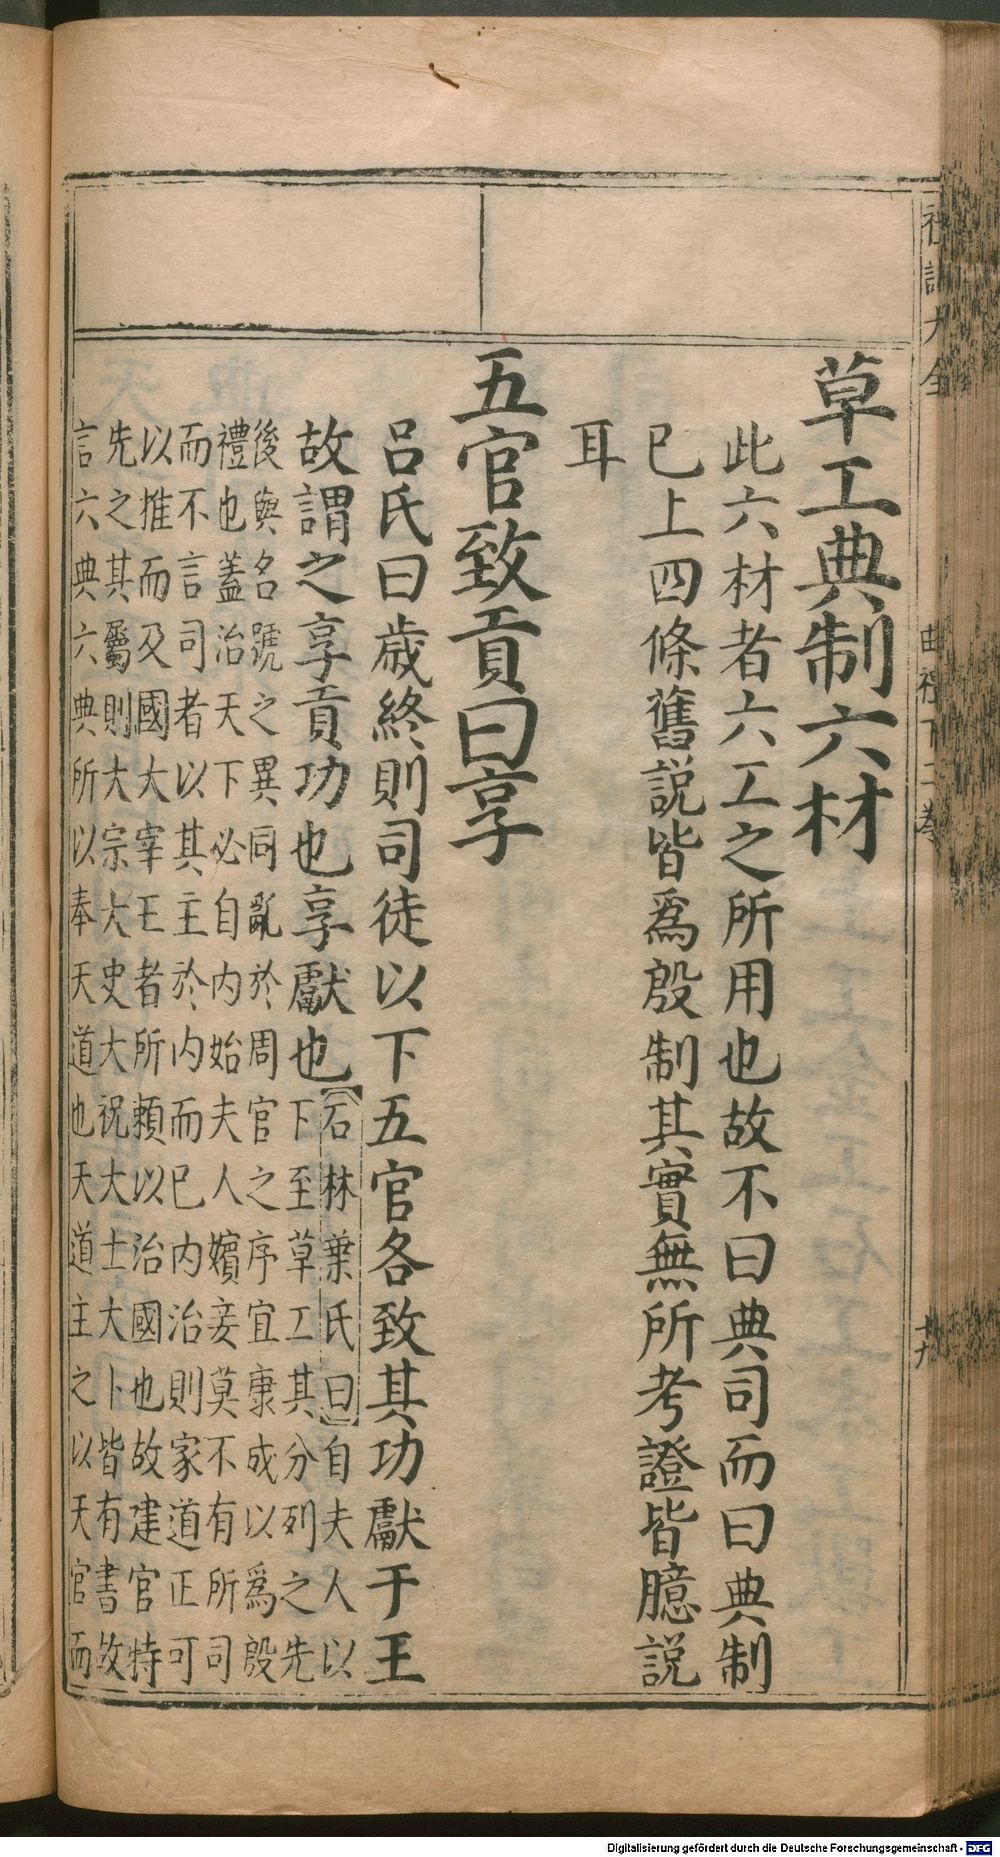 禮記大全 曲禮下二卷 十九
草工典制六材
此六材者六工之所用也故不曰典司而曰典制
已上四條舊說皆爲殷制其實無所考證皆臆說
耳
五官致貢曰享
呂氏曰歲終則司徒以下五官各致其功獻于王
故謂之享貢功也享獻也【石林葉氏曰】自夫人以
下至草工其分列之先
後與名號之異同亂於周官之序宜康成以爲殷
禮也蓋治天下必自内始夫人嬪妾莫不有所司
而不言司者以其主於内而已内治則家道正可
以推而及國大宰王者所賴以治國也故建官特
先之其屬則大宗大史大祝大士大卜皆有書故
言六典六典所以奉天道也天道主之以天官而
Digitalisierung gefördert durch die Deutsche Forschungsgemeinschaft - DFG